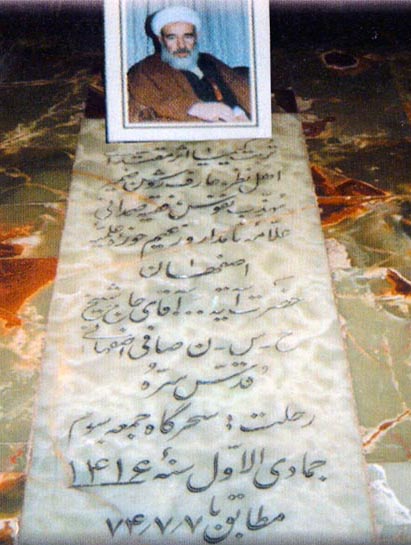 تربت کیمیا اثر
اهل نظر و عارف روشن ضمیر
مهذب نفوس
علامه نامدار و زعیم حوزه علمیه
اصفهان
حضرت آیة .. آقای حاج شیخ
ح-س-ن صافی اصفهانی
قدّس سرّه
رحلت: سحرگاه جمعه سوم
جمادی الاوّل سنهٔ ۱۴۱۶
مطابق با ۷۴٫۷٫۷